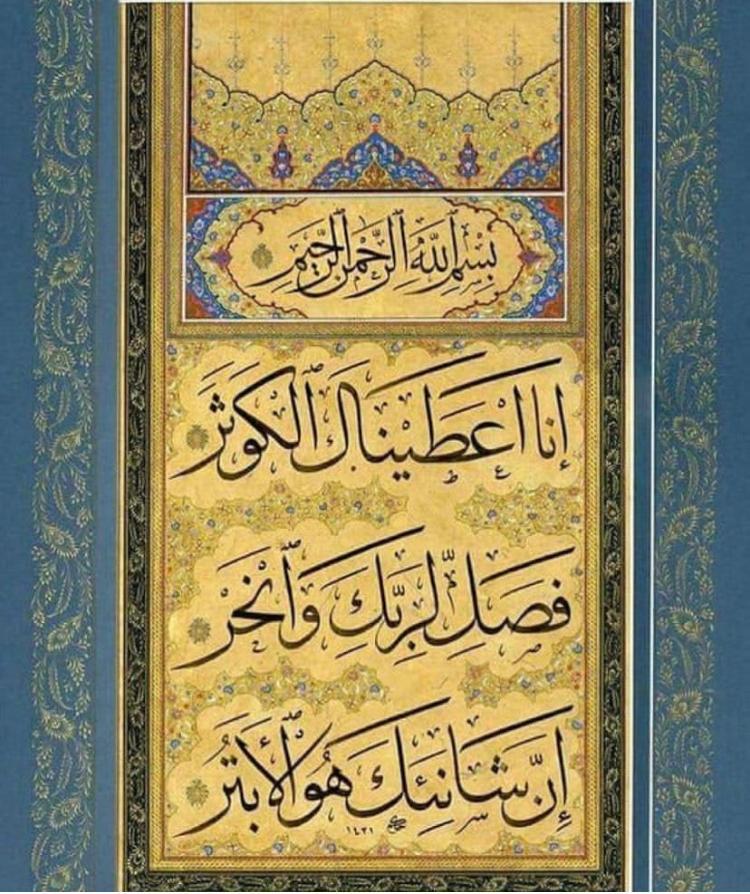 بِسْمِ ٱللَّهِ ٱلرَّحْمٰنِ ٱلرَّحِيمِ
إنا اعطيناك الكوثر
فصل لربك وانحر
إن شانئك هو الأبتر
١٤٣١